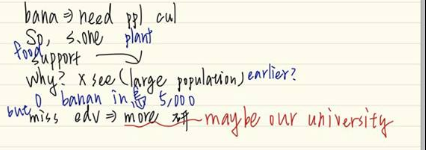 bana ⇒ need ppl cul
So, s.one plant
food support →
why? x see (large population) earlier?
0 banan in 5,000
but miss edv ⇒ more 研 maybe our university